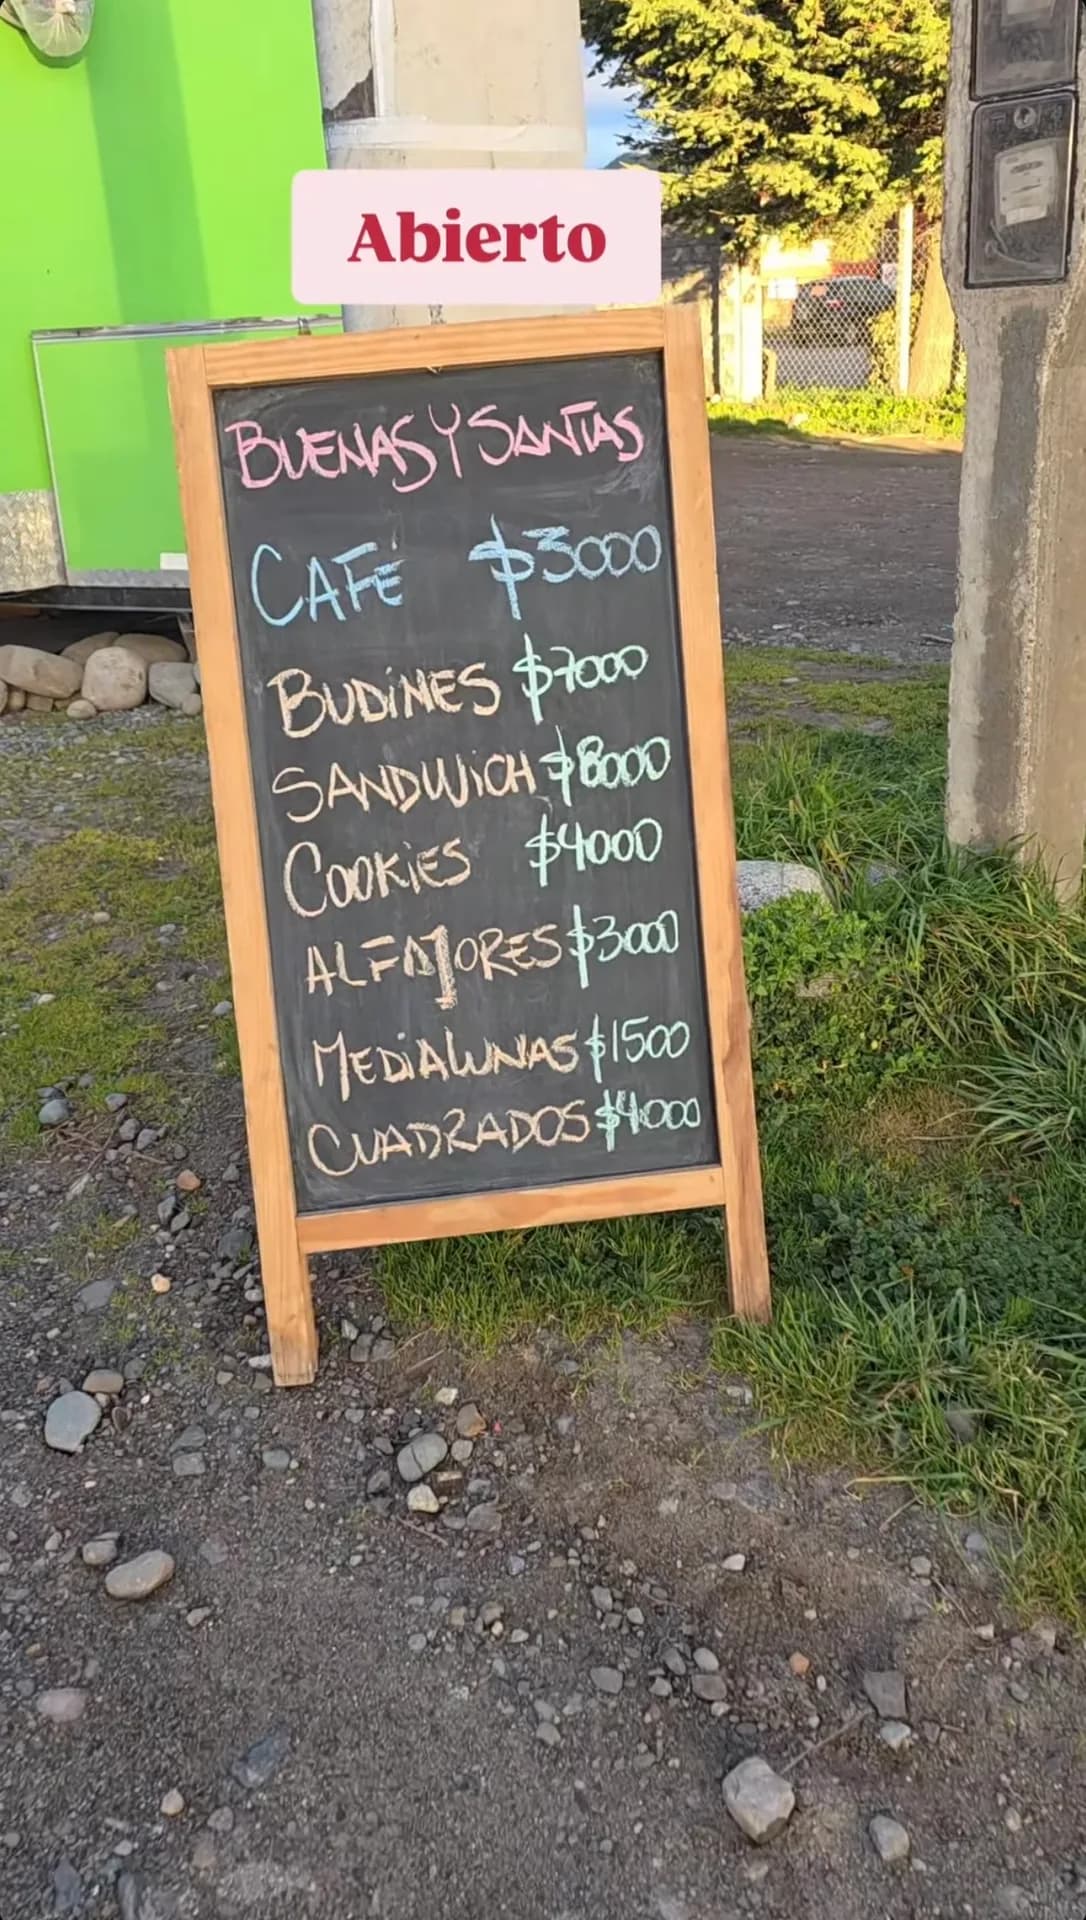 Abierto
BUENAS Y SANTAS
CAFÉ $3000
BUDINES $7000
SANDWICH $8000
COOKIES $4000
ALFAJORES $3000
MEDIALUNAS $1500
CUADRADOS $4000